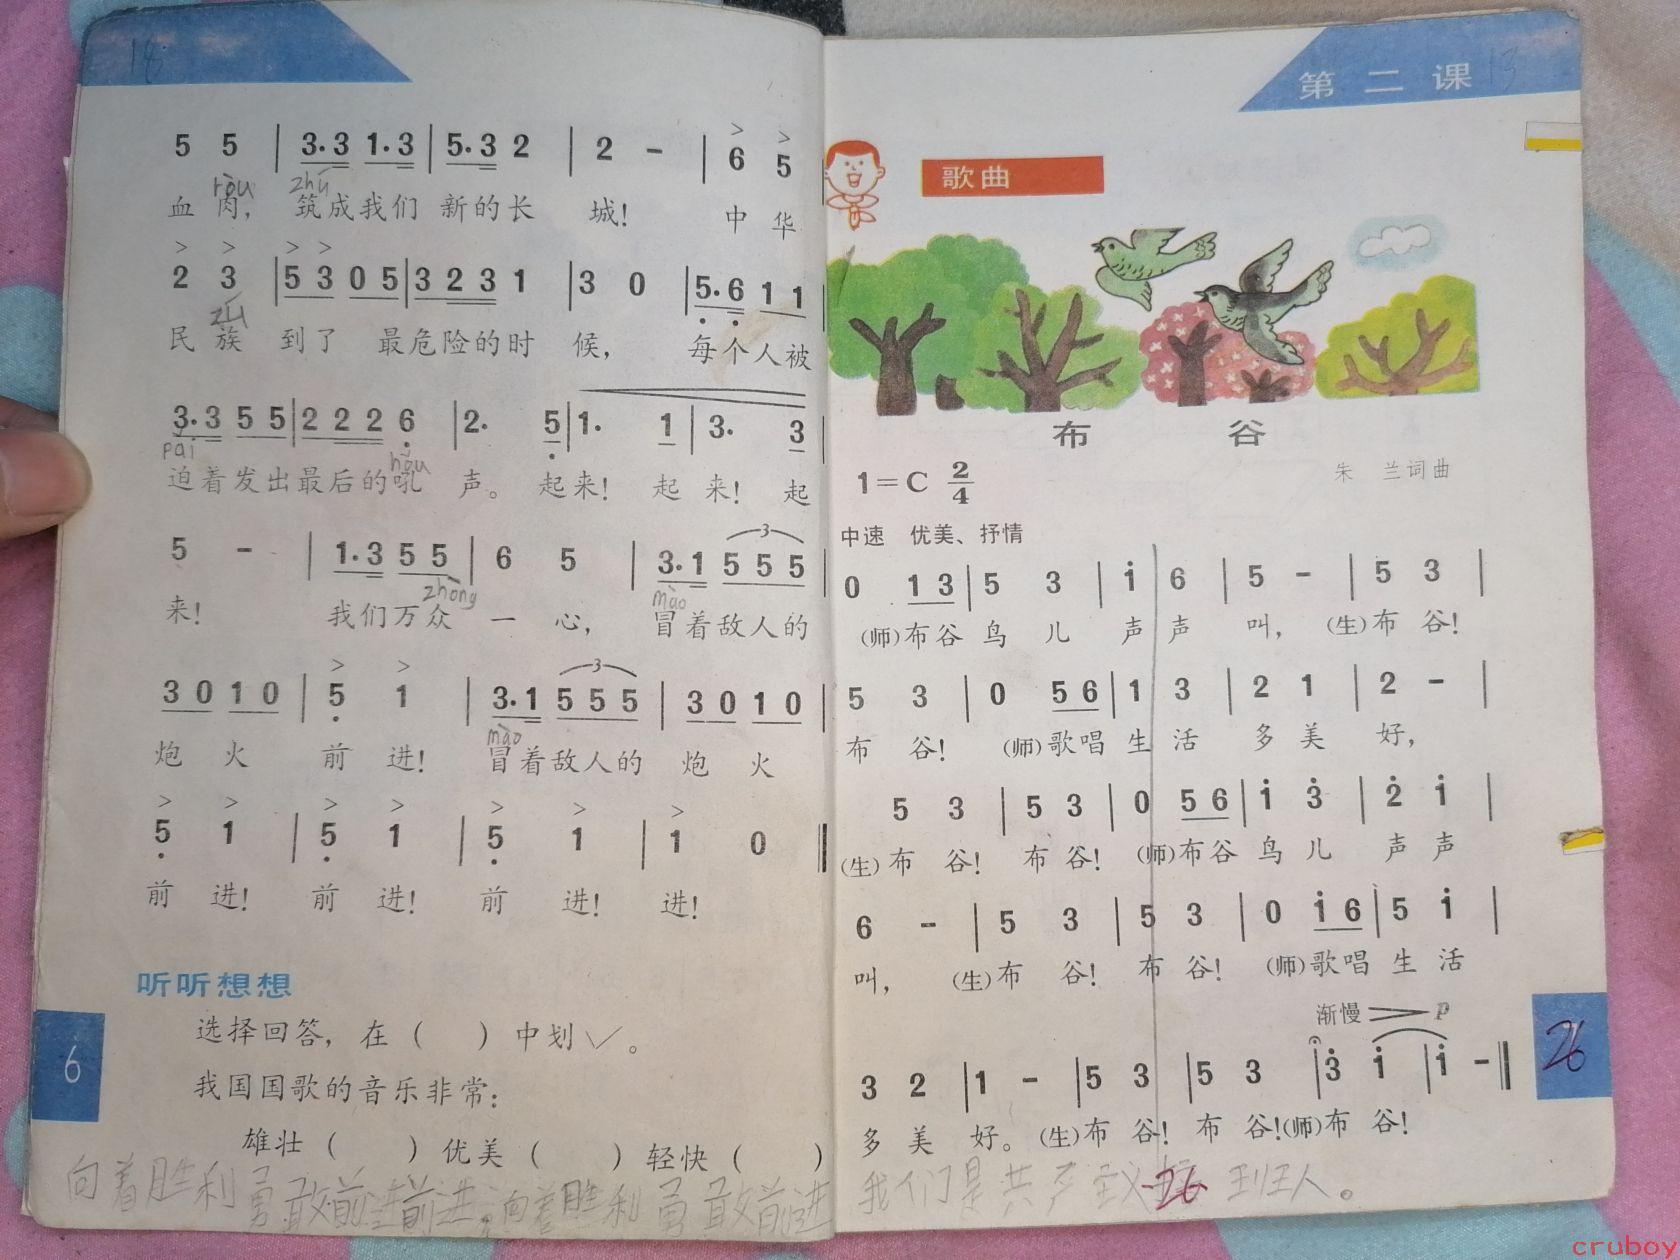 18
5 5 | 3. 3 1. 3 | 5. 3 2 | 2 - | 6 5
ròu zhú
血 肉， 筑成我们 新的长 城！ 中 华
2 3 | 5 3 0 5 | 3 2 3 1 | 3 0 | 5. 6 1 1
zú
民 族 到了 最危险的时 候， 每个人被
3. 3 5 5 | 2 2 2 6 | 2. 5 | 1. 1 | 3. 3
pai hǒu
迫着发出最后的吼 声。 起来！ 起 来！ 起
3 3
5 - | 1. 3 5 5 | 6 5 | 3. 1 5 5 5
zhòng mào
来！ 我们万众 一 心， 冒着敌人的
3
3 0 1 0 | 5 1 | 3. 1 5 5 5 | 3 0 1 0
mào
炮 火 前 进！ 冒着敌人的 炮 火
5 1 | 5 1 | 5 1 | 1 0
前 进！ 前 进！ 前 进！ 进！
听听想想
选择回答，在（ ）中划✓。
我国国歌的音乐非常：
雄壮（ ）优美（ ）轻快（ ）
6
向着胜利勇敢前进前进。向着胜利勇敢前进
第二课
13
歌曲
布 谷
1=C 2/4
朱 兰词曲
中速 优美、抒情
0 1 3 | 5 3 | i 6 | 5 - | 5 3 |
（师）布谷 鸟 儿 声 声 叫，（生）布 谷！
5 3 | 0 5 6 | 1 3 | 2 1 | 2 - |
布 谷！（师）歌唱 生 活 多 美 好，
5 3 | 5 3 | 0 5 6 | i 3 | 2 i |
（生）布 谷！ 布 谷！（师）布谷 鸟 儿 声 声
6 - | 5 3 | 5 3 | 0 i 6 | 5 i |
叫，（生）布 谷！ 布 谷！（师）歌唱 生 活
渐慢 > p
3 2 | 1 - | 5 3 | 5 3 | 3 i | i -
多 美 好。（生）布 谷！ 布 谷！（师）布 谷！
26
我们是共产主义
26
cruboy